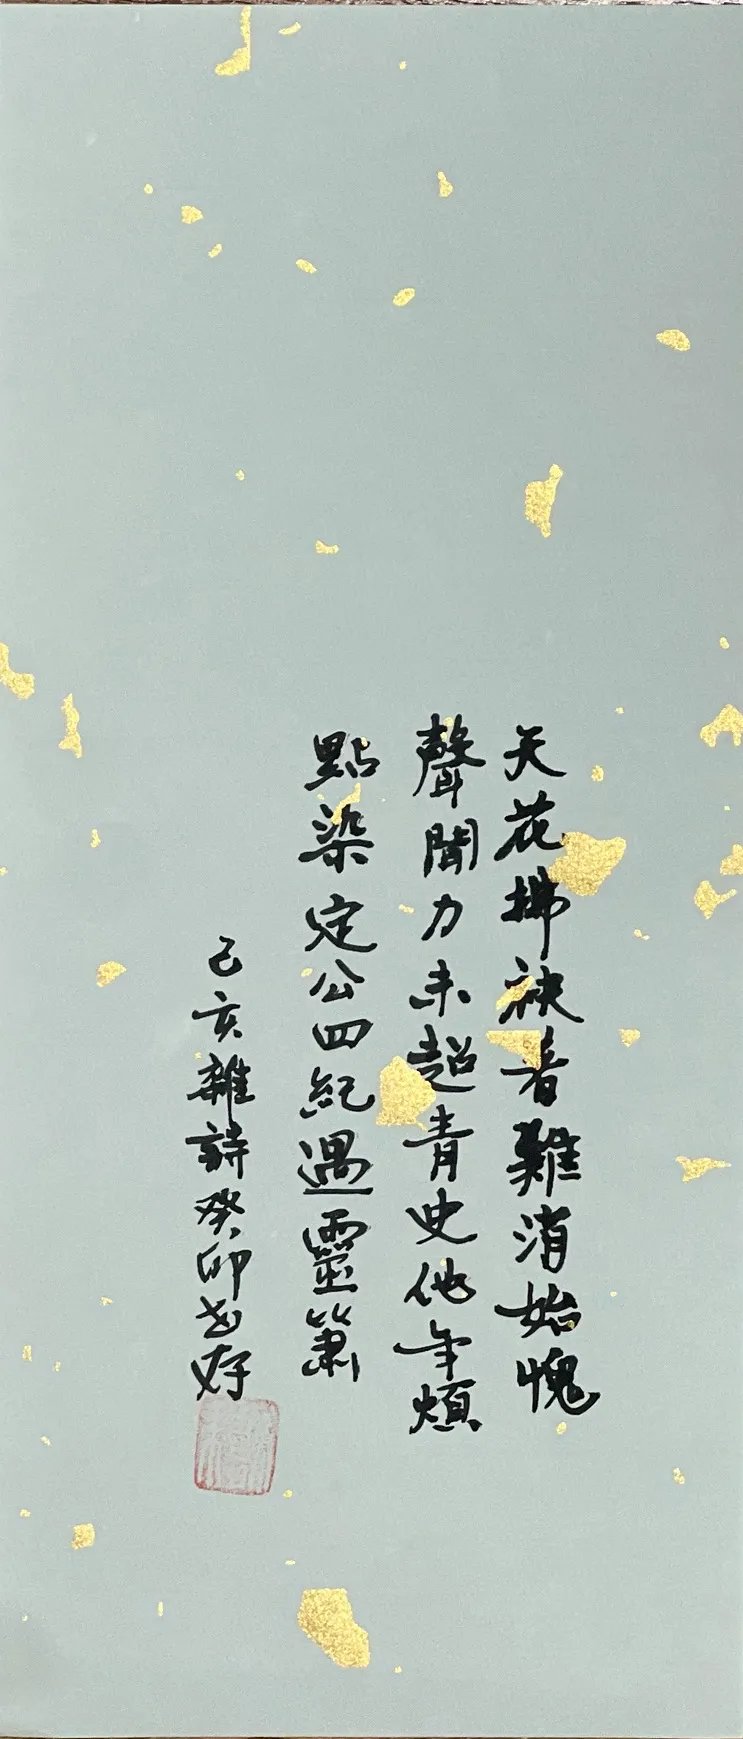 天花拂袂着難消始愧
聲聞力未超青史他年煩
點染定公四紀遇靈簫
己亥雜詩癸卯書存